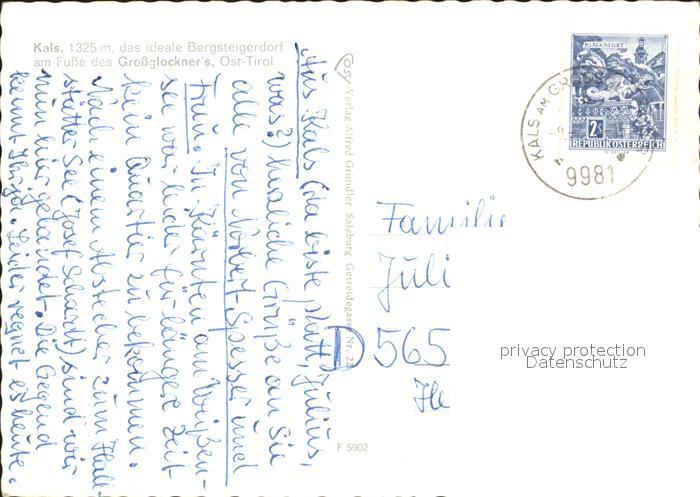 Kals, 1325 m, das ideale Bergsteigerdorf
am Fuße des Großglockner's, Ost-Tirol.
Aus Kals (da biste platt, Julius,
was?) herzliche Grüße an Sie
alle von Norbert Spesser und
Frau. In Kärnten am Weißen-
see war leider für längere Zeit
kein Quartier zu bekommen.
Nach einem Abstecher zum Hall-
stätter See (Josef Schardt) sind wir
nun hier gelandet. Die Gegend
kennt Ihr ja. Leider regnet es heute.
Verlag Alfred Gründler Salzburg Getreidegasse Nr. 2
F 5902
KLAGENFURT
2S
REPUBLIK ÖSTERREICH
KALS AM GROSS
9981
Familie
Juli
D 565
He
privacy protection
Datenschutz